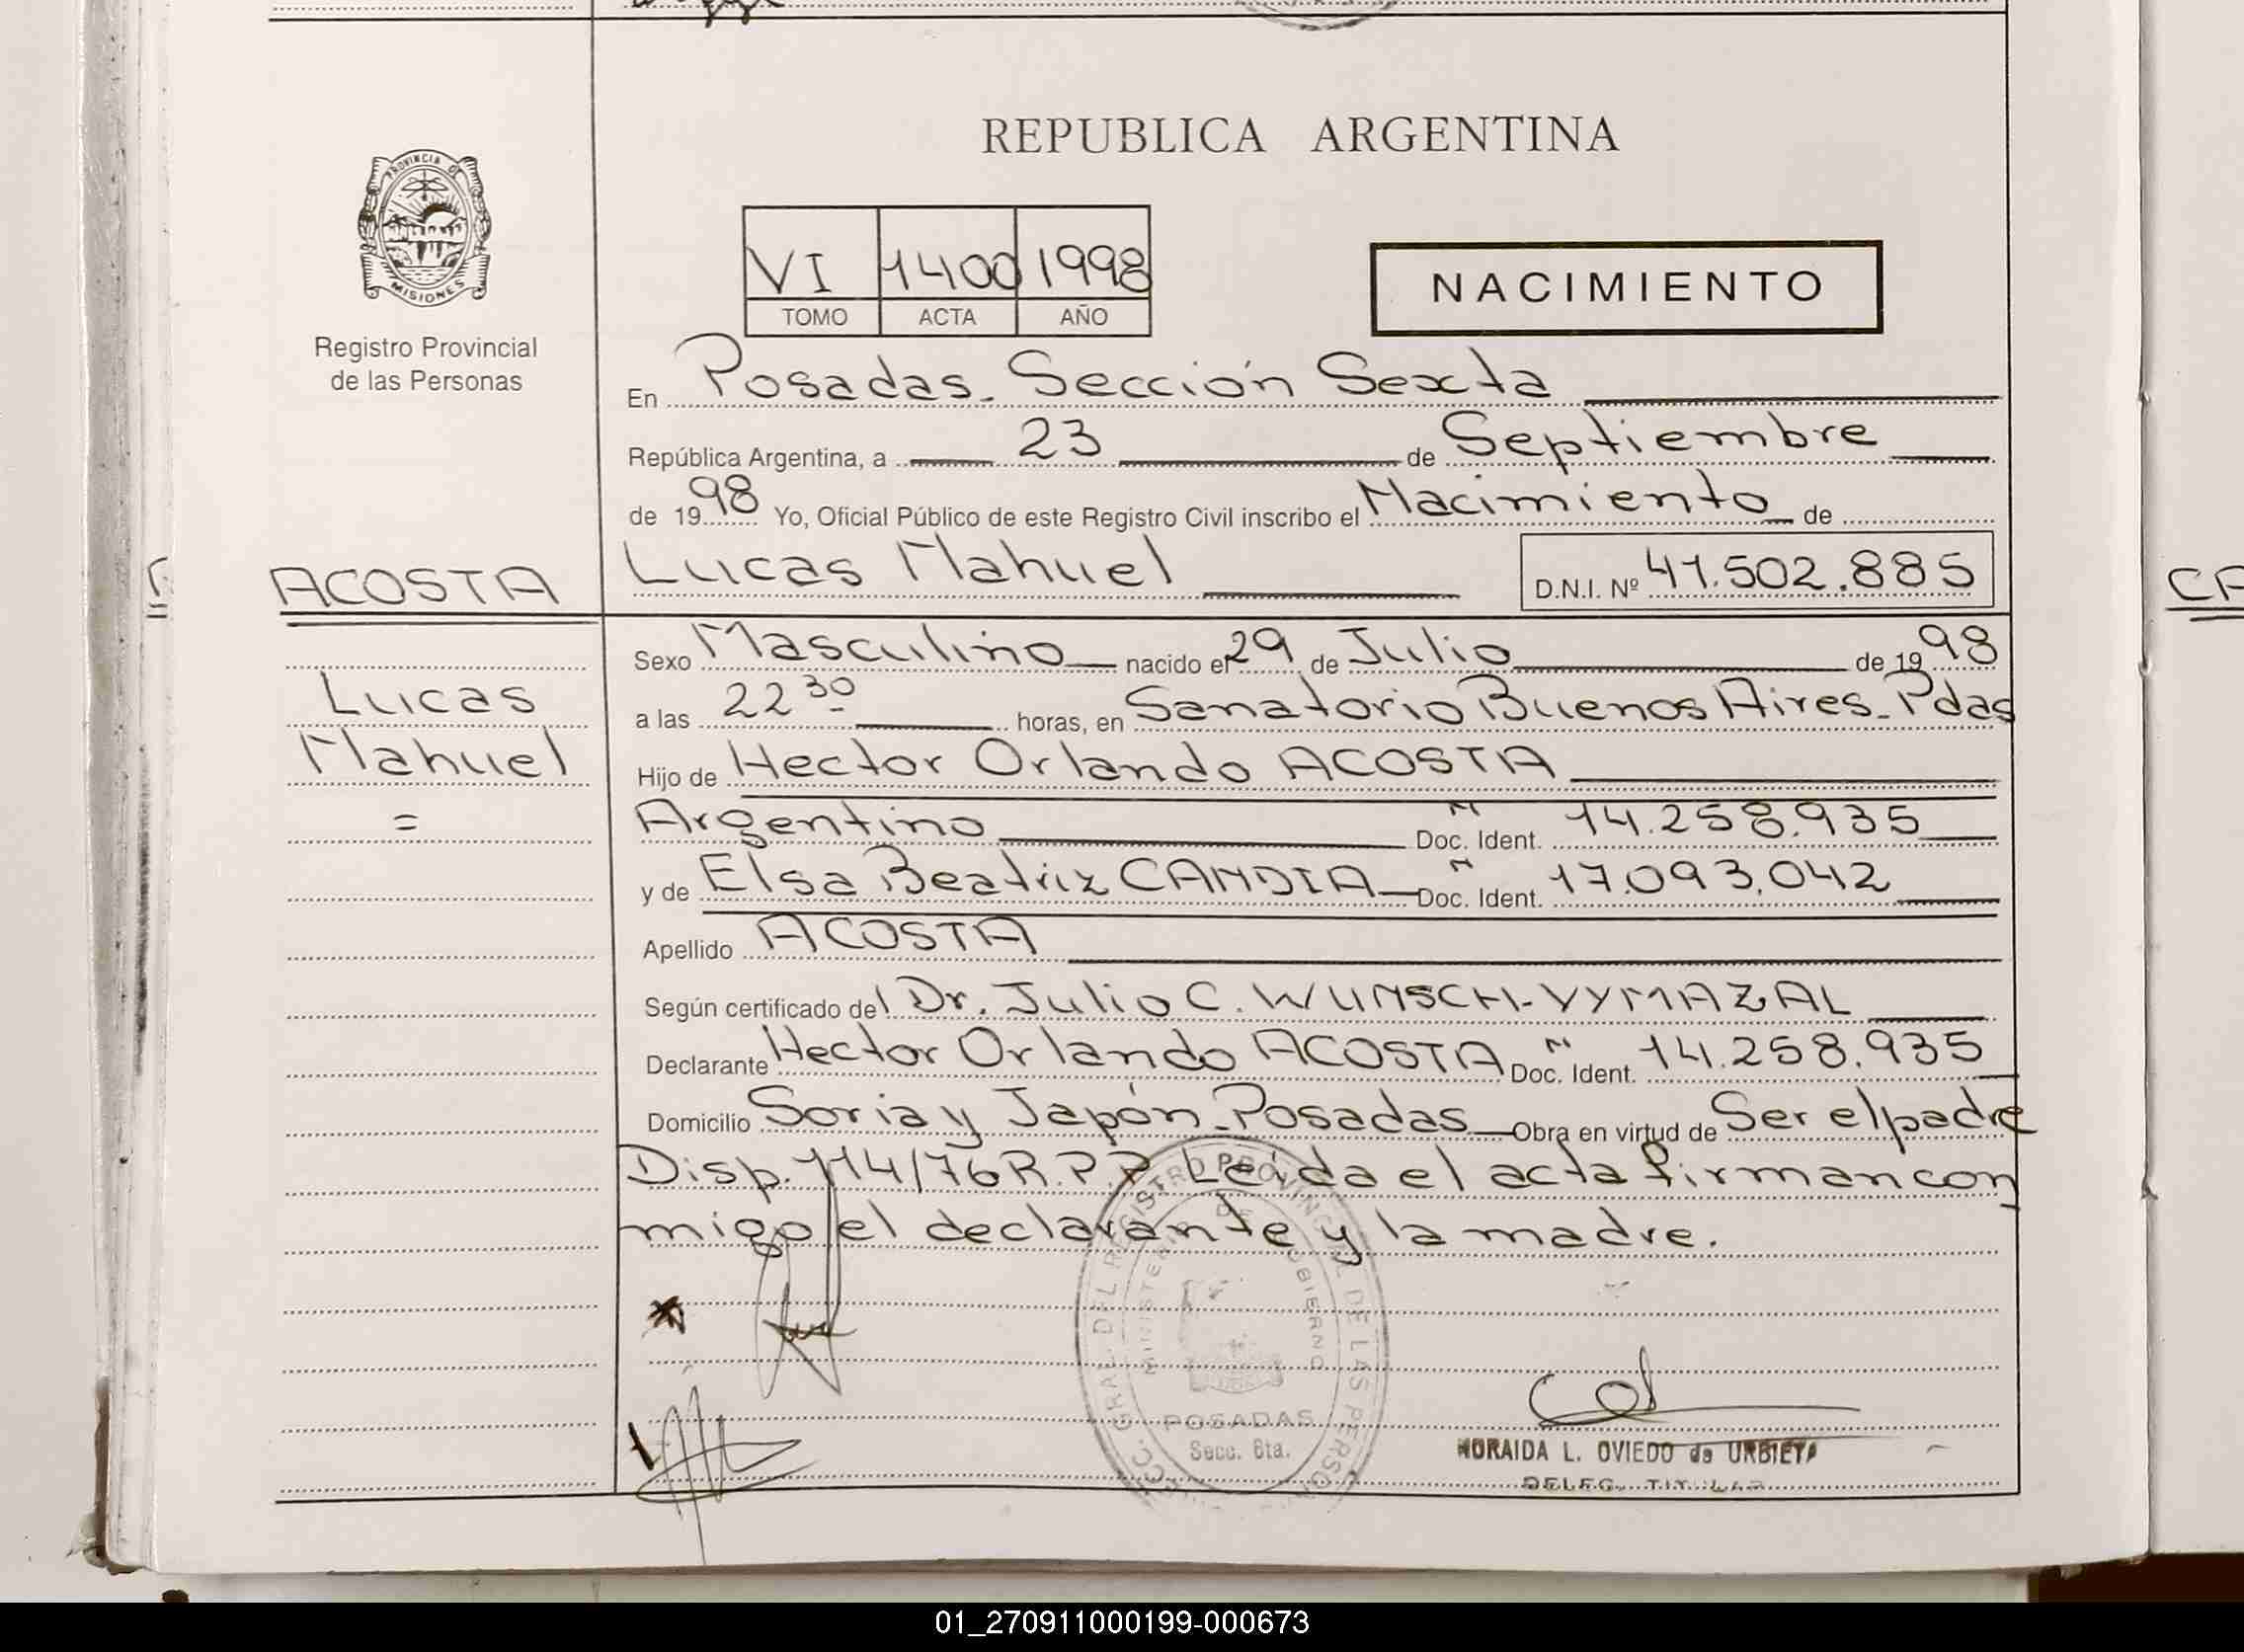 REPUBLICA ARGENTINA
PROVINCIA DE
MISIONES
Registro Provincial
de las Personas
VI 1400 1998
TOMO ACTA AÑO
NACIMIENTO
En Posadas. Sección Sexta
República Argentina, a 23 de Septiembre
de 1998 Yo, Oficial Público de este Registro Civil inscribo el Nacimiento de
ACOSTA
Lucas Nahuel D.N.I. Nº 41.502.885
Lucas
Nahuel
=
Sexo Masculino nacido el 29 de Julio de 1998
a las 22 30 horas, en Sanatorio Buenos Aires. Pdas
Hijo de Hector Orlando ACOSTA
Argentino Doc. Ident. 14.258.935
y de Elsa Beatriz CANDIA Doc. Ident. 17.093.042
Apellido ACOSTA
Según certificado del Dr. Julio C. WUNSCH-VYMAZAL
Declarante Hector Orlando ACOSTA Doc. Ident. 14.258.935
Domicilio Soria y Japón. Posadas Obra en virtud de Ser el padre
Disp. 114/76 R.P.P. Leída el acta firman con
migo el declarante y la madre.
GRAL. DEL REGISTRO PROVINCIAL DE LAS PERSONAS
MINISTERIO DE GOBIERNO
POSADAS
Secc. 6ta.
NORAIDA L. OVIEDO de URBIETA
DELEG. TITULAR
CA
01_270911000199-000673